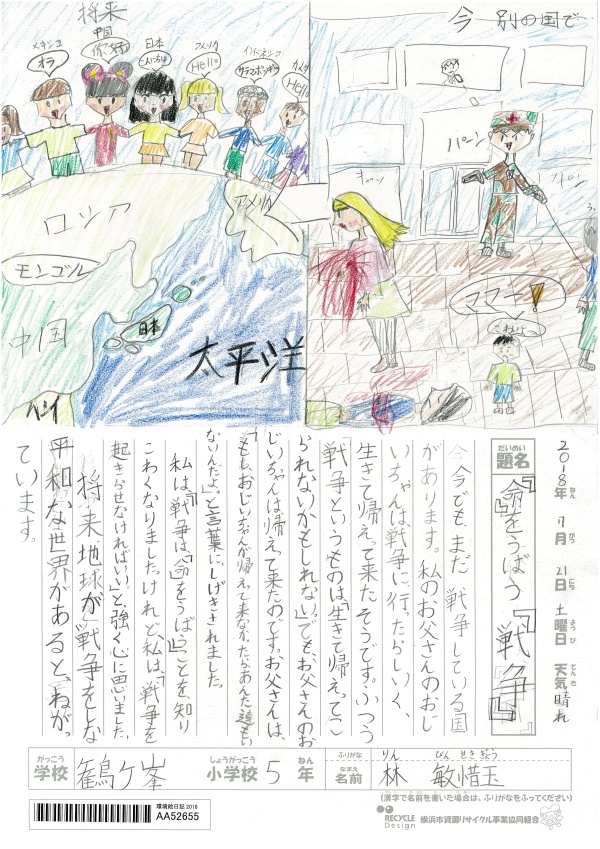 将来
メキシコ
オラ
中国
你好
日本
こんにちは
アメリカ
Hello
インドネシア
カナダ
Hello
ロシア
モンゴル
中国
日本
アメリカ
太平洋
タイ
今 別の国で
バーン
バーン
キャッ
ママー!
こわいよ
2018年 7月 21日 土曜日 天気 晴れ
ねん がつ にち ようび てんき
だいめい
題名
『命をうばう『戦争』』
今でも、まだ 戦争している国
があります。私のお父さんのおじ
いちゃんは、戦争に行ったらしく、
生きて帰えって来たそうです。ふつう
戦争というものは、「生きて帰えってこ
られないかもしれない」でも、お父さんのお
じいちゃんは帰えって来たのです。お父さんは、
「もし、おじいちゃんが帰えって来なかったら、あんた達もい
ないんだよ。」と言葉に、しげきされました。
私は、『戦争は、「命」をうばう』ことを、知り
こわくなりました。けれど、私は、「戦争を
起きらせなければいい」と、強く心に思いました。
将来地球が「戦争をしな
平和な世界があると、ねがっ
ています。
がっこう
学校
鶴ケ峯
しょうがっこう
小学校
5
ねん
年
ふりがな
りん びん せきぎょく
なまえ
名前
林 敏惜玉
(漢字で名前を書いた場合は、ふりがなをふってください)
環境絵日記 2018
AA52655
RECYCLE
Design
横浜市資源リサイクル事業協同組合